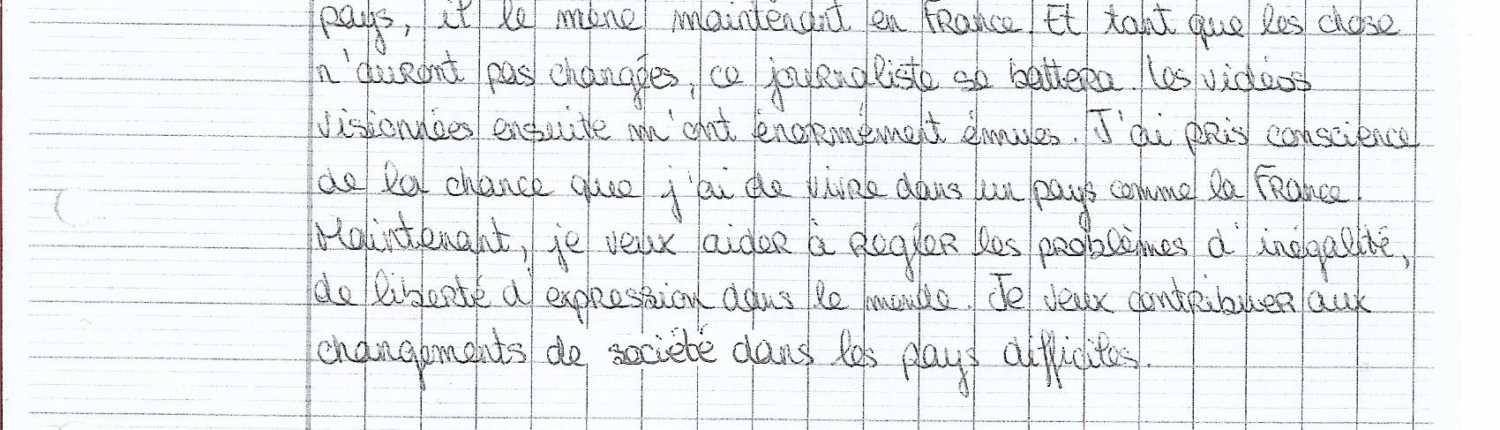 pays, il le mène maintenant en France. Et tant que les chose
n'auront pas changées, ce journaliste se battera. Les vidéos
visionnées ensuite m'ont énormément émues. J'ai pris conscience
de la chance que j'ai de vivre dans un pays comme la France.
Maintenant, je veux aider à regler les problèmes d'inégalité,
de liberté d'expression dans le monde. Je veux contribuer aux
changements de société dans les pays difficiles.